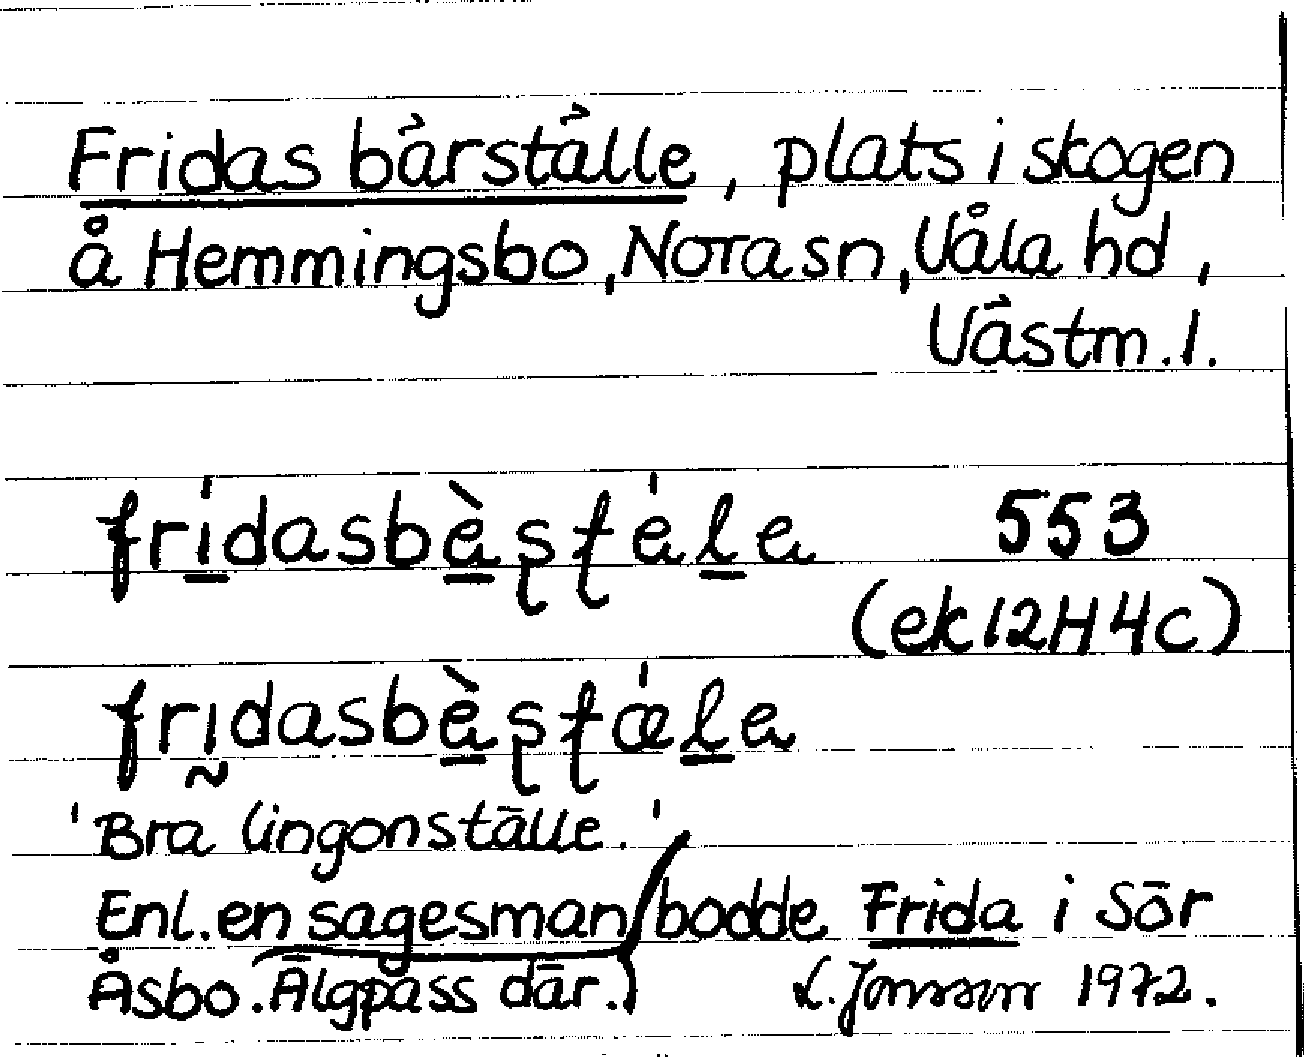 Fridas bärställe, plats i skogen
å Hemmingsbo, Nora sn, Våla hd,
Västm. l.
fridasbèʂʈéle 553
(ek 12H4c)
fridasbèʂʈǽle
'Bra lingonställe.'
Enl. en sagesman bodde Frida i Sör
Åsbo. Älgpass där.) L. Jonsson 1972.